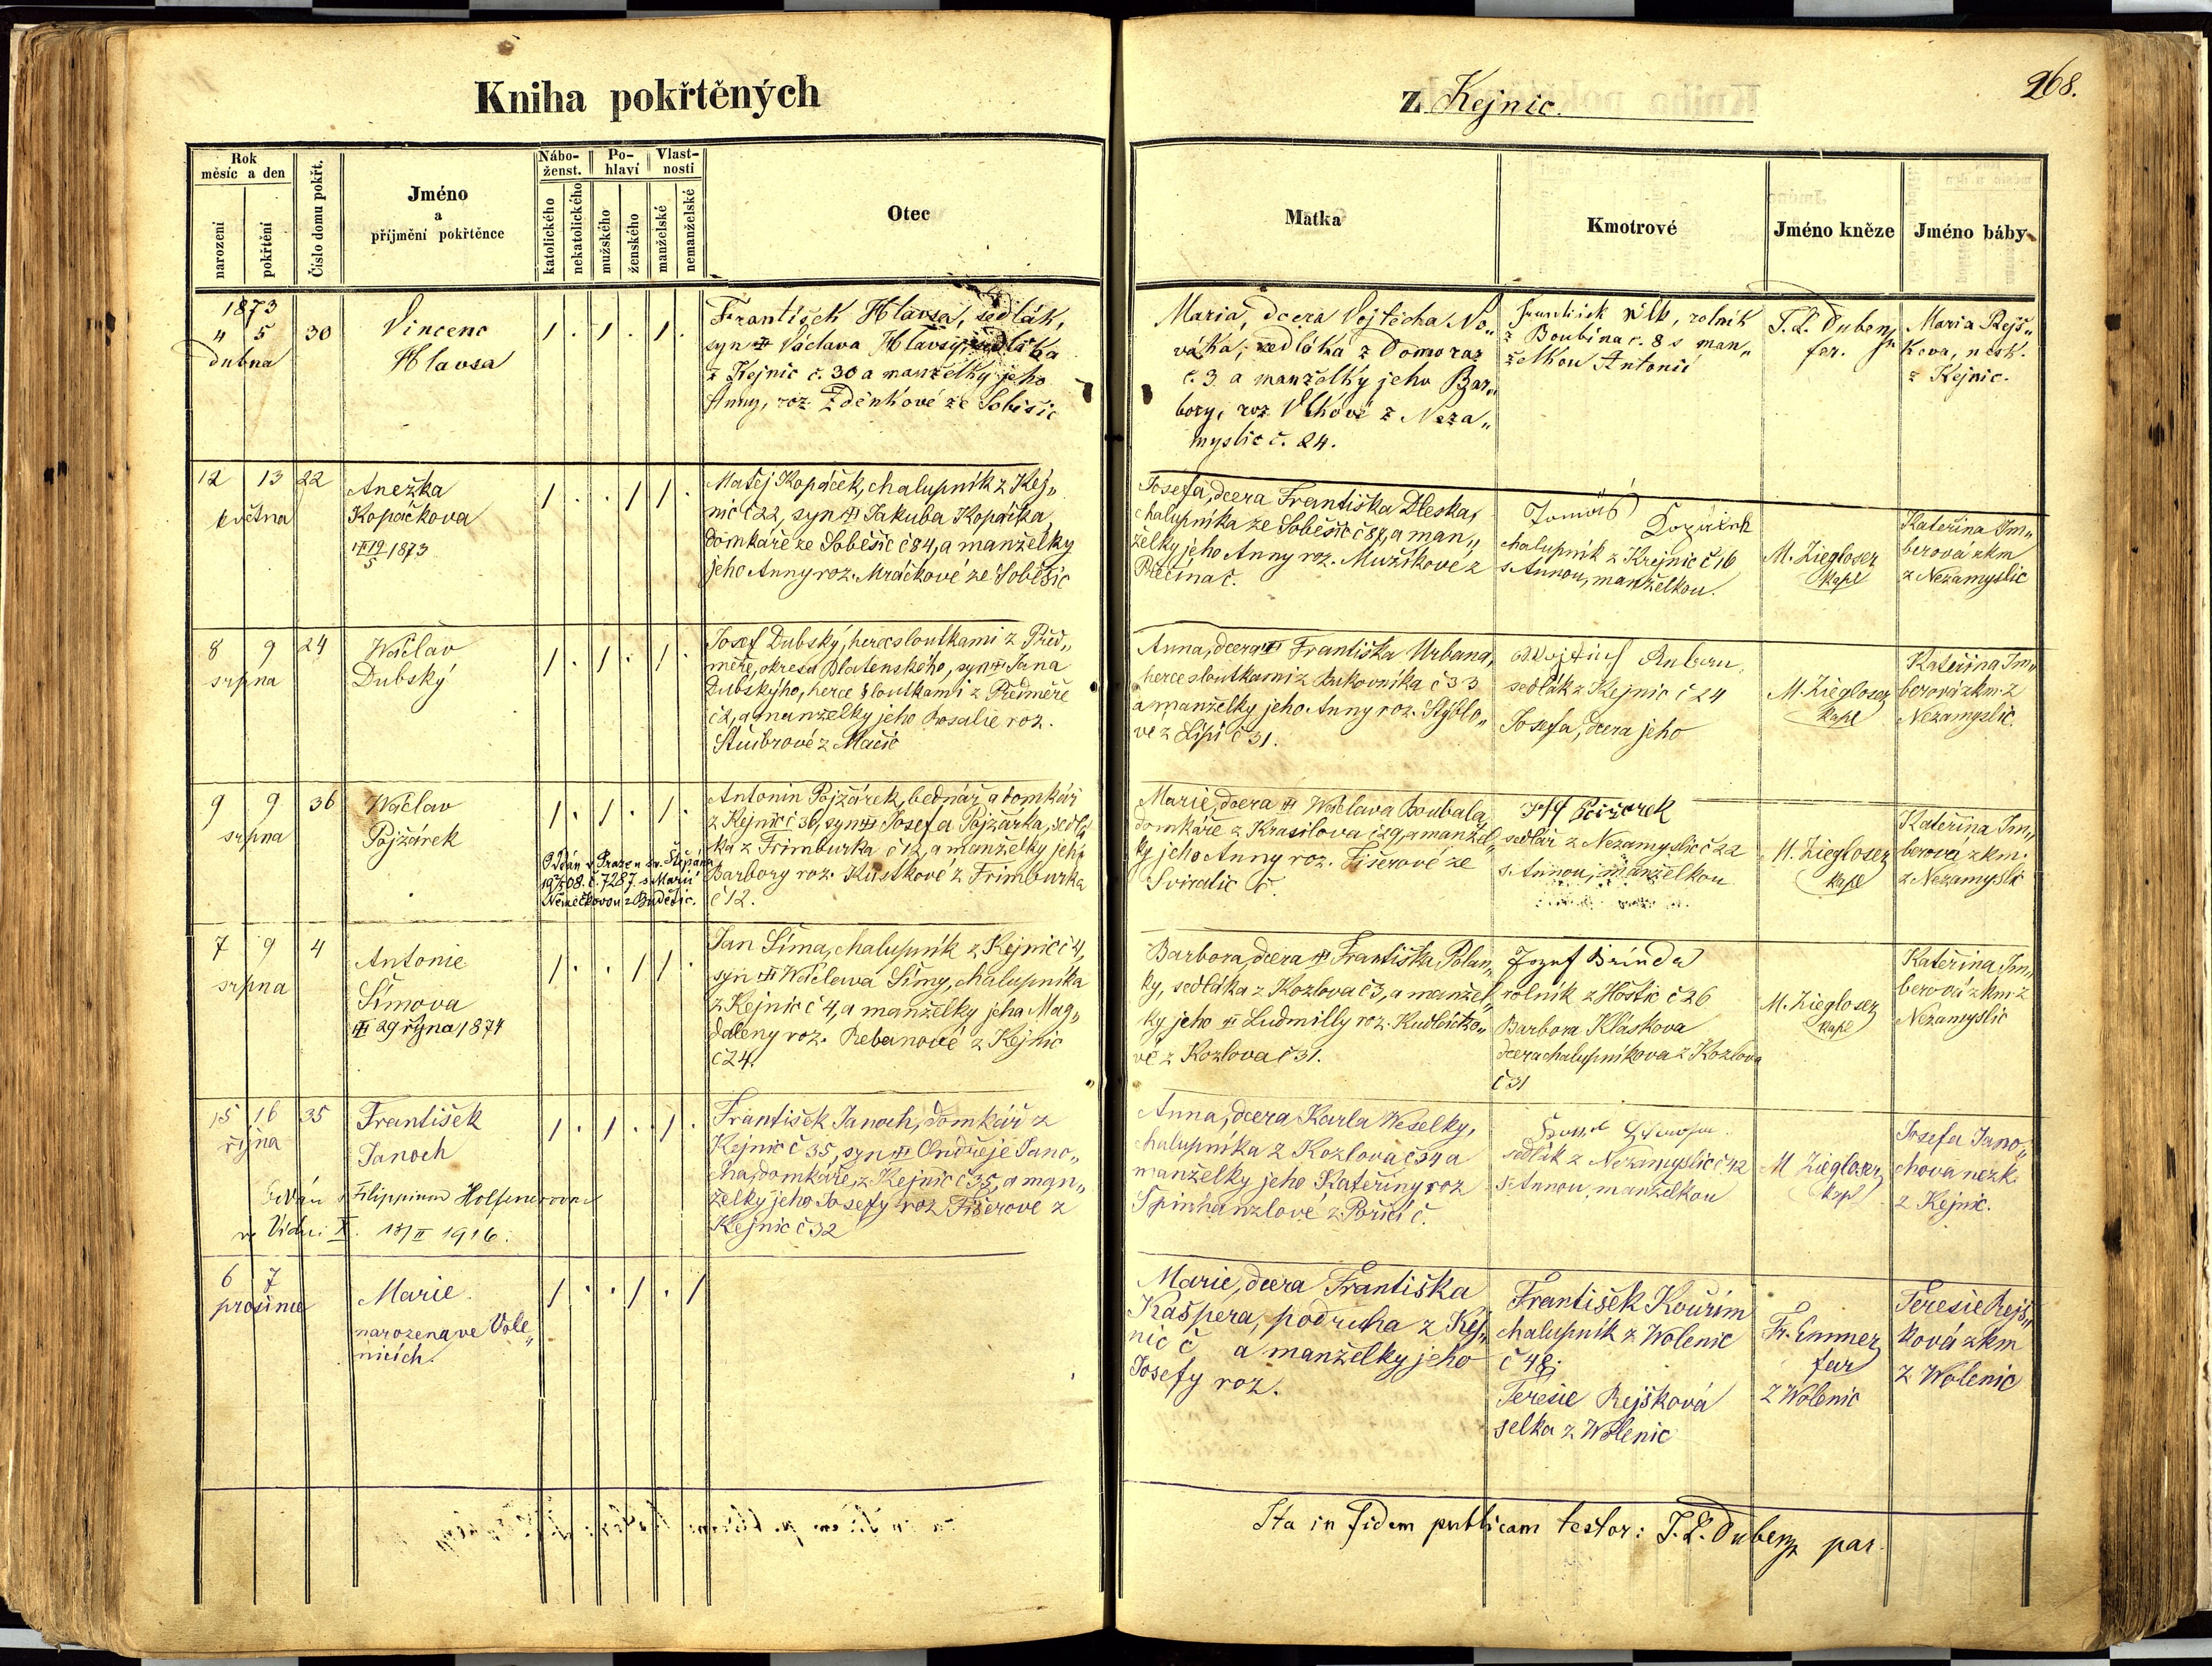 Kniha pokřtěných
z Kejnic.
268.
Rok
měsíc a den
narození
pokřtění
Číslo domu pokřt.
Jméno
a
příjmění pokřtěnce
Nábo-
ženst.
katolického
nekatolického
Po-
hlaví
mužského
ženského
Vlast-
nosti
manželské
nemanželské
Otec
Matka
Kmotrové
Jméno kněze
Jméno báby
1873
4 5 30
dubna
Vincenc
Hlavsa
1 . 1 . 1 .
František Hlavsa, sedlák,
syn † Václava Hlavsy, sedláka
z Kejnic č. 30 a manželky jeho
Anny, roz Zdeňkové ze Soběšic
Maria, dcera Vojtěcha No„
váka, sedláka z Domoraz
č. 3 a manželky jeho Bar„
bory, roz Vlkové z Neza„
myslic č. 24.
František Vlk, rolník
z Boubína č. 8 s man„
želkou Antonií
J. L. Dubenz
far.
Maria Rejš„
kova, nezk.
z Kejnic.
12 13 22
května
Anežka
Kopáčkova
† 19/5 1873
1 . . 1 1 .
Matěj Kopáček, chalupník z Kej„
nic č 22, syn † Jakuba Kopáčka,
domkáře ze Soběšic č 84, a manželky
jeho Anny roz. Mráčkové ze Soběšic
Josefa, dcera Františka Dleska,
chalupníka ze Soběšic č 87, a man„
želky jeho Anny roz. Mužíkové z
Přečína č.
Tomáš
chalupník z Krejnic č 16
s Annou, manželkou.
M. Ziegloser
kapl
Kateřina Im„
berová zkm
z Nezamyslic
8 9 24
srpna
Wáclav
Dubský
1 . 1 . 1 .
Josef Dubský, herec sloutkami z Před„
měře, okresu Blatenského, syn † Jana
Dubskýho, herce s loutkami z Předměře
č 2, a manželky jeho Rosalie roz.
z Mačic
Anna, dcera † Františka Urbana,
herce sloutkami z Bukovníka č 33
a manželky jeho Anny roz. Stýblo„
vé z Lipí č 31.
sedlák z Kejnic č 24
Josefa, dcera jeho
M. Ziegloser
kapl
Kateřina Im„
berová zkm z
Nezamyslic.
9 9 36
srpna
Wáclav
Pojžárek
1 . 1 . 1 .
Oddán v Praze u sv. Štěpána
1908. č. 7287. s Marií
Němečkovou z Budětic.
Antonín Pojžárek, bednář a domkář
z Kejnic č 36, syn † Josefa Pojžárka, sedlá
ka z Frimburka č 12, a manželky jeho
Barbory roz. Kůstkové z Frimburka
č 12.
Marie, dcera † Wáclava Boubala,
domkáře z Krasilova č 29, a manžel„
ky jeho Anny roz. Fišerové ze
Sviratic č.
sedlář z Nezamyslic č 22
s Annou, manželkou
M. Ziegloser
kapl
Kateřina Im„
berová zkm.
z Nezamyslic
7 9 4
srpna
Antonie
Šímova
† 29 října 1874
1 . . 1 1 .
Jan Šíma, chalupník z Kejnic č 4,
syn † Wáclava Šímy, chalupníka
z Kejnic č 4, a manželky jeho Mag„
daleny roz. Rebanové z Kejnic
č 24.
Barbora, dcera † Františka Polan„
ky, sedláka z Kozlova č 3, a manžel„
ky jeho † Ludmilly roz.
vé z Kozlova č 31.
Jozef Brinda
rolník z Hoštic č 26
Barbora Kláskova
dcera chalupníkova z Kozlova
č 31
M. Ziegloser
kapl
Kateřina Im„
berová zkm z
Nezamyslic
15 16 35
října
František
Janoch
1 . 1 . 1 .
oddán s Filippinou
ve Vídni X. 13/II 1916.
František Janoch, domkář z
Kejnic č 35, syn † Ondřeje Jano„
cha, domkáře z Kejnic č 35, a man„
želky jeho Josefy roz Fišerové z
Kejnic č 32
Anna, dcera Karla Weselky,
chalupníka z Kozlova č 34 a
manželky jeho Kateřiny roz
Špinhanzlové z Poříčí č.
sedlák z Nezamyslic č 42
s Annou, manželkou
M Ziegloser
kapl
Josefa Jano„
chova nezk.
z Kejnic.
6 7
prosince
Marie
narozena ve Vole„
nicích.
1 . . 1 . 1
Marie, dcera Františka
Kašpera, podruha z Kej„
nic č a manželky jeho
Josefy roz.
František Kouřím
chalupník z Wolenic
č 48;
Teresie Rejšková
selka z Wolenic
Fr. Emmer
far
z Wolenic
Teresie Rejš„
ková zkm
z Wolenic
Ita in fidem publicam testor: J. L. Dubenz par.